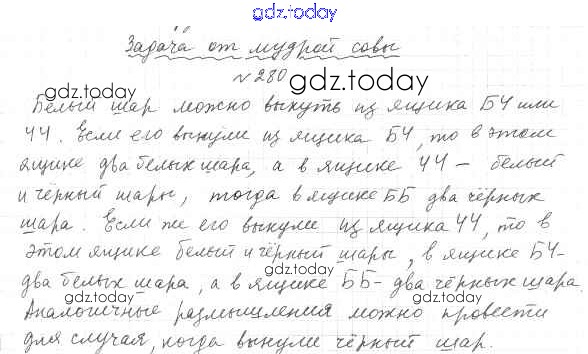 gdz.today
Задача от мудрой совы
№ 280 gdz.today
Белый шар можно вынуть из ящика БЧ или
ЧЧ. Если его вынули из ящика БЧ, то в этом
gdz.today gdz.today
ящике два белых шара, а в ящике ЧЧ – белый
и чёрный шары, тогда в ящике ББ два чёрных
шара. Если же его вынули из ящика ЧЧ, то в
этом ящике белый и чёрный шары, в ящике БЧ-
два белых шара, а в ящике ББ- два чёрных шара.
gdz.today gdz.today
Аналогичные размышления можно провести
для случая, когда вынули чёрный шар.